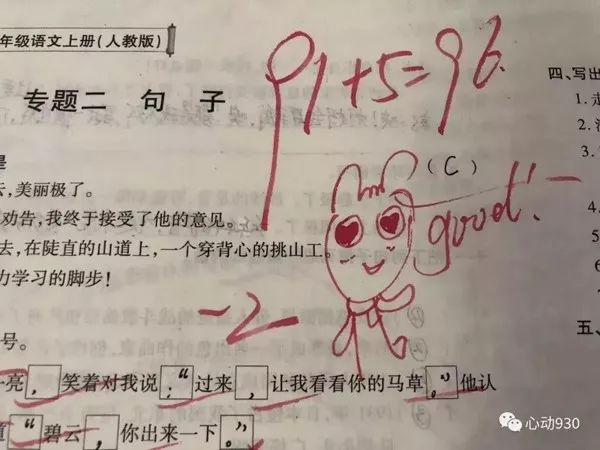 年级语文上册(人教版)
专题二 句 子
91+5=96.
四、写出
1.
2.
3.
是
(C)
good!
去,美丽极了。
劝告,我终于接受了他的意见。
4.
去,在陡直的山道上,一个穿背心的挑山工。
5
力学习的脚步!
6
-2
7
8
号。
五、
一亮,笑着对我说:“过来,让我看看你的马草。”他认
道“碧云,你出来一下。”
心动930